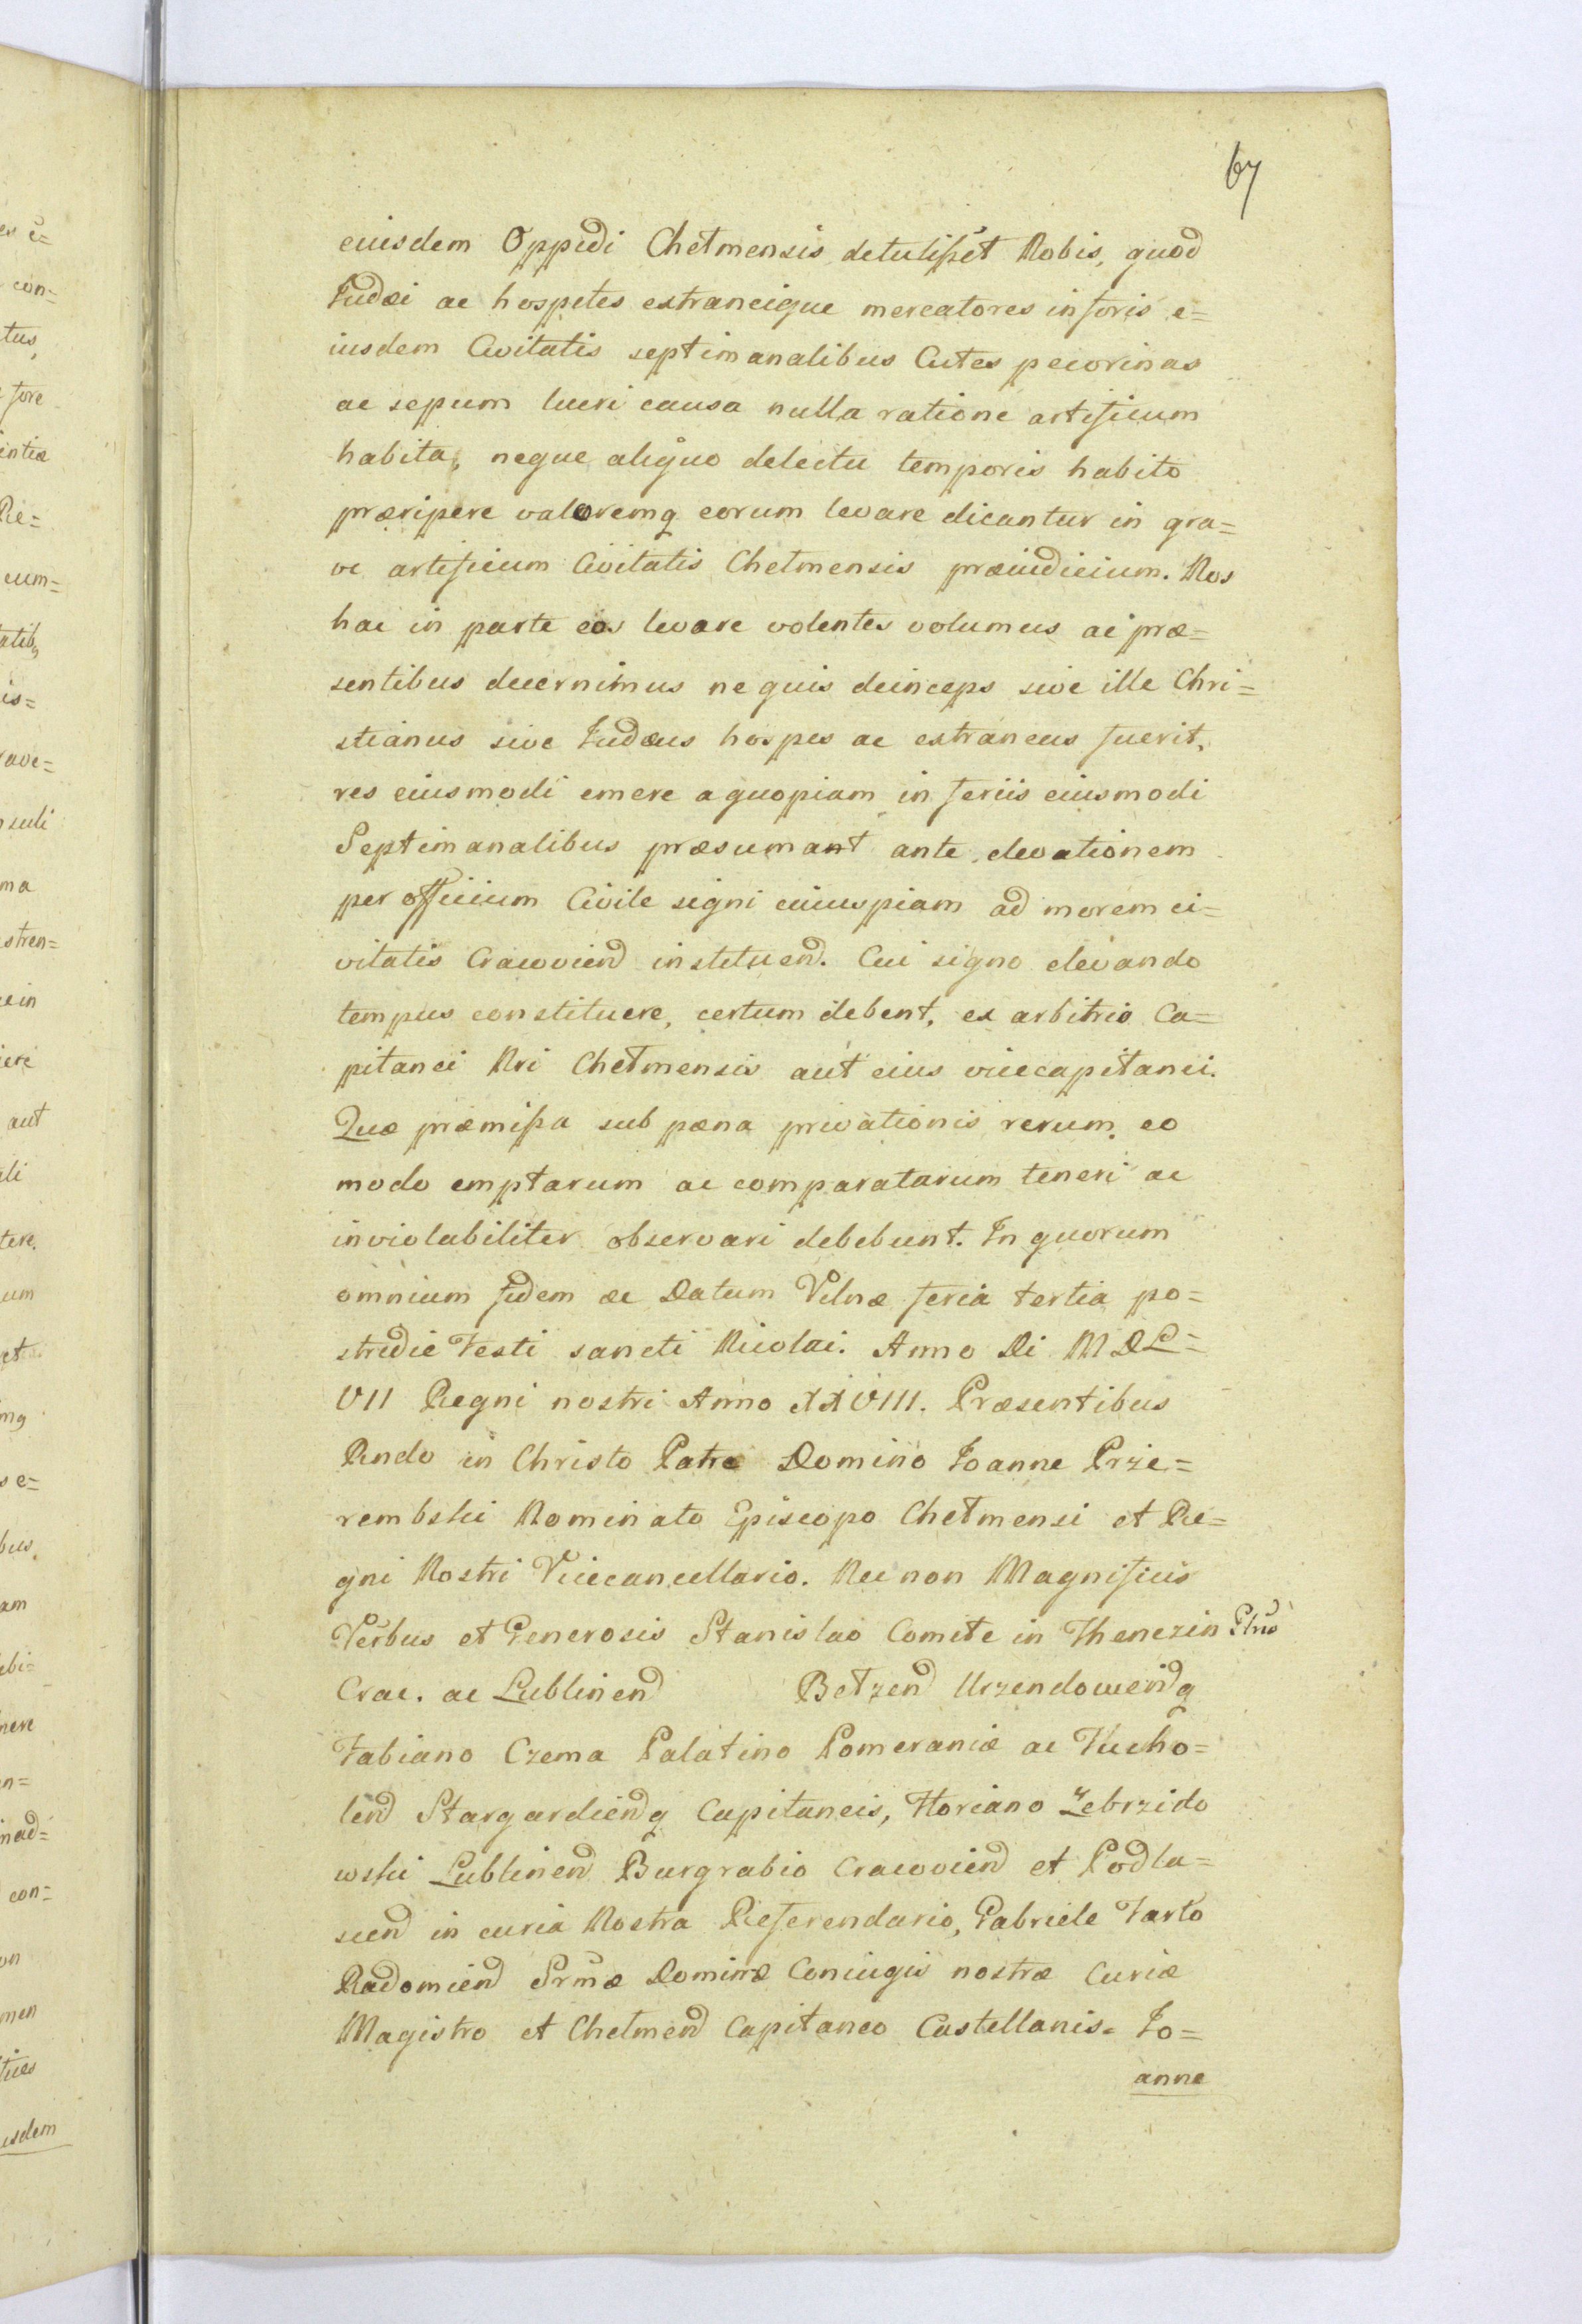 67
eiusdem Oppidi Chełmensis detulißet Nobis, quod
Iudæi ac hospites extraneique mercatores in foris e=
iusdem Civitatis septimanalibus Cutes pecorinas
ac sepum lucri causa nulla ratione artificum
habita, neque aliquo delectu temporis habito
præripere valoremq eorum levare dicantur in gra=
ve artificum Civitatis Chełmensis præiudicium. Nos
hac in parte eos levare volentes volumus ac præ=
sentibus decernimus ne quis deinceps sive ille Chri=
stianus sive Iudæus hospes ac extraneus fuerit,
res eiusmodi emere a quopiam in feriis eiusmodi
Septimanalibus præsumant ante elevationem
per officium Civile signi cuiuspiam ad morem ci=
vitatis Cracovien̄ instituen̄. Cui signo elevando
tempus constituere, certum debent, ex arbitrio Ca=
pitanei Nri Chełmensis aut eius vicecapitanei.
Quæ præmißa sub pæna privationis rerum eo
modo emptarum ac comparatarum teneri ac
inviolabiliter observari debebunt. In quorum
omnium fidem ac Datum Vilnæ feria tertia po=
stridie Festi sancti Nicolai. Anno Di MDL=
VII Regni nostri Anno XXVIII. Præsentibus
Rndo in Christo Patre Domino Ioanne Prze=
rembski Nominato Episcopo Chełmensi et Re=
gni Nostri Vicecancellario. Nec non Magnificis
Verbus et Generosis Stanislao Comite in Thenczin Plnō
Crac. ac Lublinen̄ Bełzen̄ Urzendowien̄q
Fabiano Czema Palatino Pomeraniæ ac Tucho=
len̄ Stargardien̄q Capitaneis, Floriano Zebrzido
wski Lublinen̄ Burgrabio Cracovien̄ et Podla=
sien̄ in curia Nostra Referendario, Gabriele Tarło
Radomien̄ Srm̄æ Dominæ Coniugis nostræ Curiæ
Magistro et Chełmen̄ Capitaneo Castellanis. Io=
anne